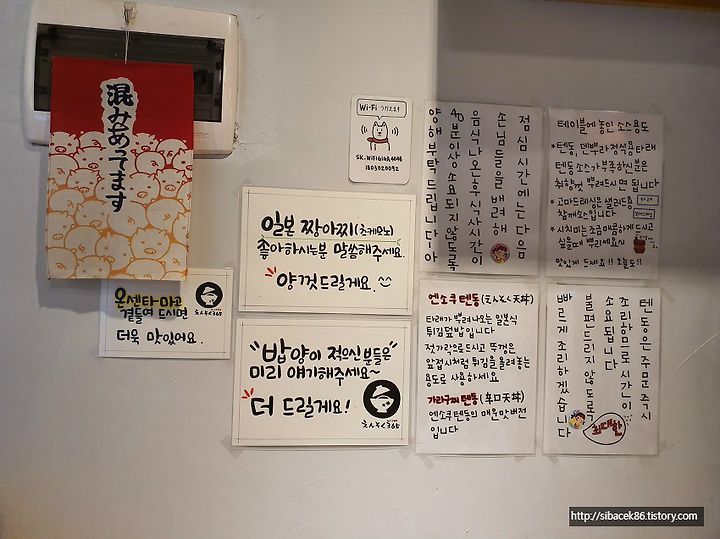 混みあってます
온센타마고
곁들여 드시면
더욱 맛있어요.
Wi-Fi
일본 짱아찌(츠케모노)
좋아하시는분 말씀해주세요.
양껏드릴게요.
"밥양이 적으신분들은"
미리 얘기해주세요~
더 드릴게요!
점심시간에는 다음
손님들을 배려해
음식 나온후 식사시간이
40분이상 소요되지 않도록
양해부탁드립니다-아
엔소쿠텐동(えんそく天丼)
타래가 뿌려나오는 일본식
튀김덮밥입니다
젓가락으로드시고 뚜껑은
앞접시처럼 튀김을 올려놓는
용도로 사용하세요
가라구찌텐동(辛口天丼)
엔소쿠텐동의 매운맛버전
입니다
테이블에놓인소스용도
*텐동, 덴뿌라정식용 타래
텐동소스가 부족하신분은
취향껏 뿌려드시면 됩니다
*고마드레싱은샐러드용
참깨소스입니다
*시치미는조금매콤하게 드시고
싶을때 뿌리세요
맛있게 드세요!! 오늘도!!
텐동은 주문 즉시
조리하므로 시간이
소요됩니다
불편드리지 않도록
최대한
빠르게 조리하겠습니다
http://sibacek86.tistory.com